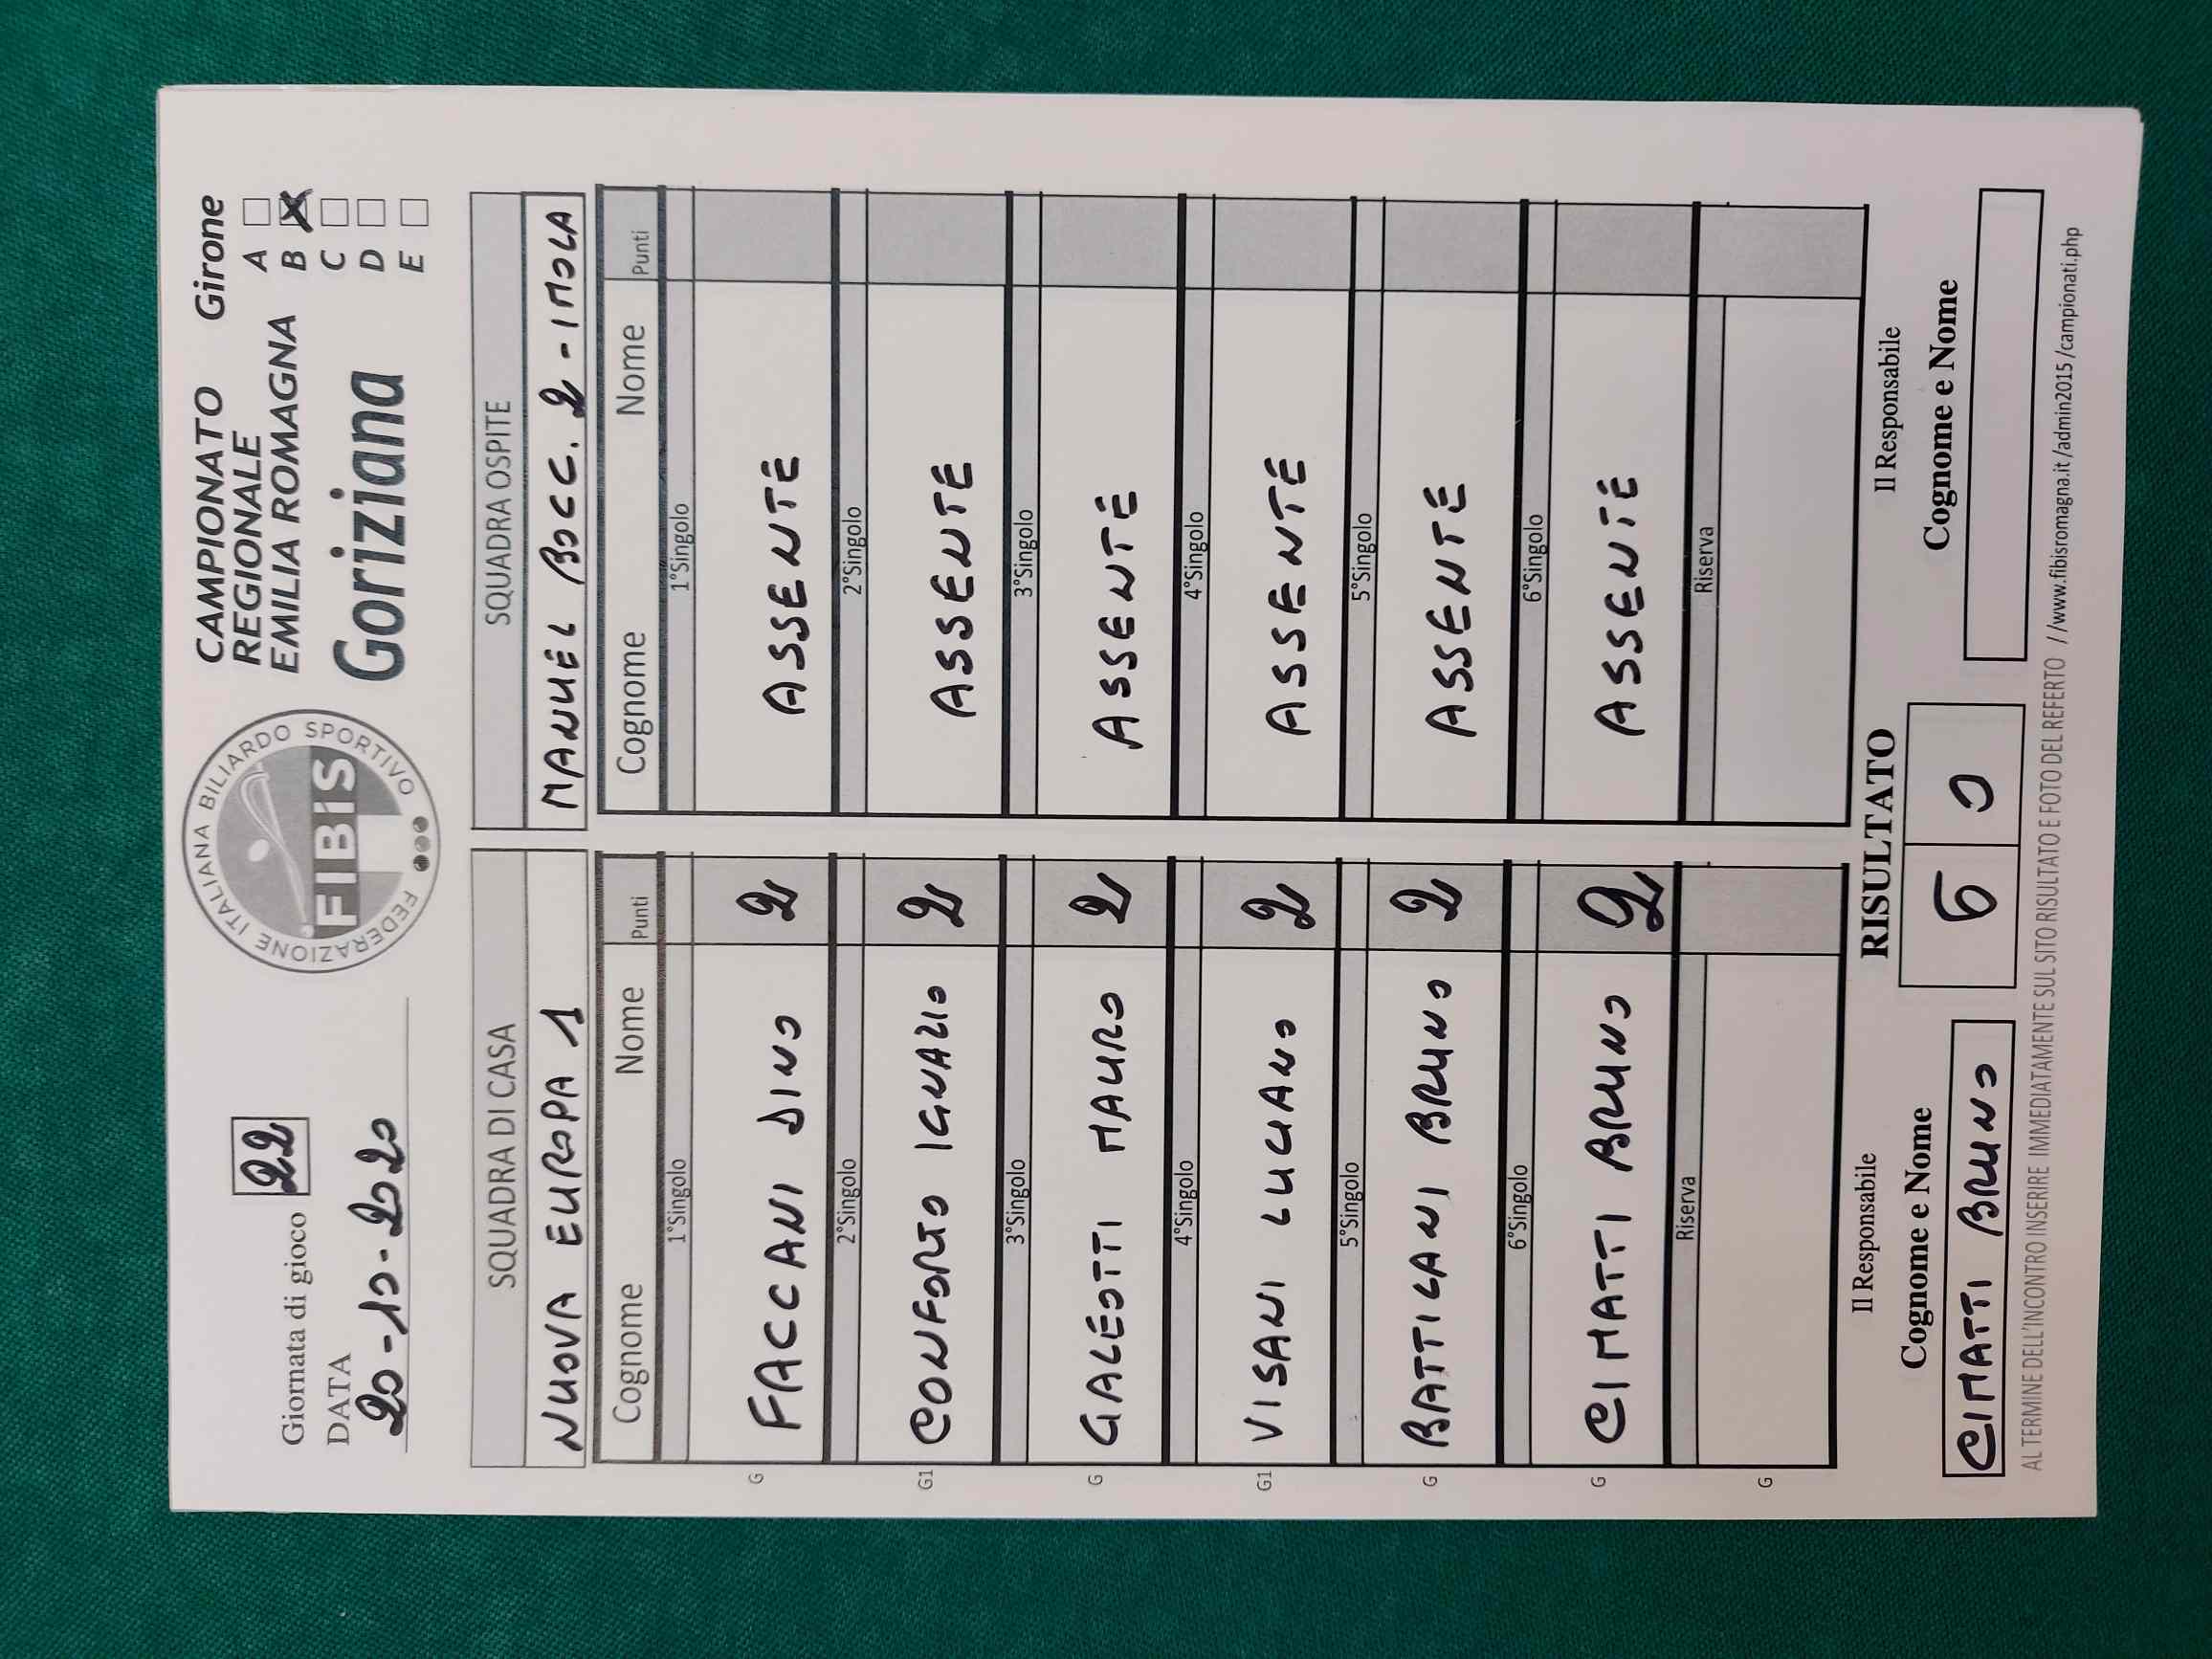 Giornata di gioco 22
DATA
20-10-2020
FEDERAZIONE ITALIANA BILIARDO SPORTIVO
FIBIS
CAMPIONATO Girone
REGIONALE
EMILIA ROMAGNA
Goriziana
A
B X
C
D
E
SQUADRA DI CASA SQUADRA OSPITE
NUOVA EUROPA 1 MANUEL BOCC. 2 - IMOLA
Cognome Nome Punti Cognome Nome Punti
1°Singolo 1°Singolo
G FACCANI DINO 2 ASSENTE
2°Singolo 2°Singolo
G1 CONFORTO IGNAZIO 2 ASSENTE
3°Singolo 3°Singolo
G GALEOTTI MAURO 2 ASSENTE
4°Singolo 4°Singolo
G1 VISANI LUCIANO 2 ASSENTE
5°Singolo 5°Singolo
G BATTILANI BRUNO 2 ASSENTE
6°Singolo 6°Singolo
G CIMATTI BRUNO 2 ASSENTE
Riserva Riserva
G
Il Responsabile RISULTATO Il Responsabile
Cognome e Nome 6 0 Cognome e Nome
CIMATTI BRUNO
AL TERMINE DELL'INCONTRO INSERIRE IMMEDIATAMENTE SUL SITO RISULTATO E FOTO DEL REFERTO //www.fibisromagna.it/admin2015/campionati.php